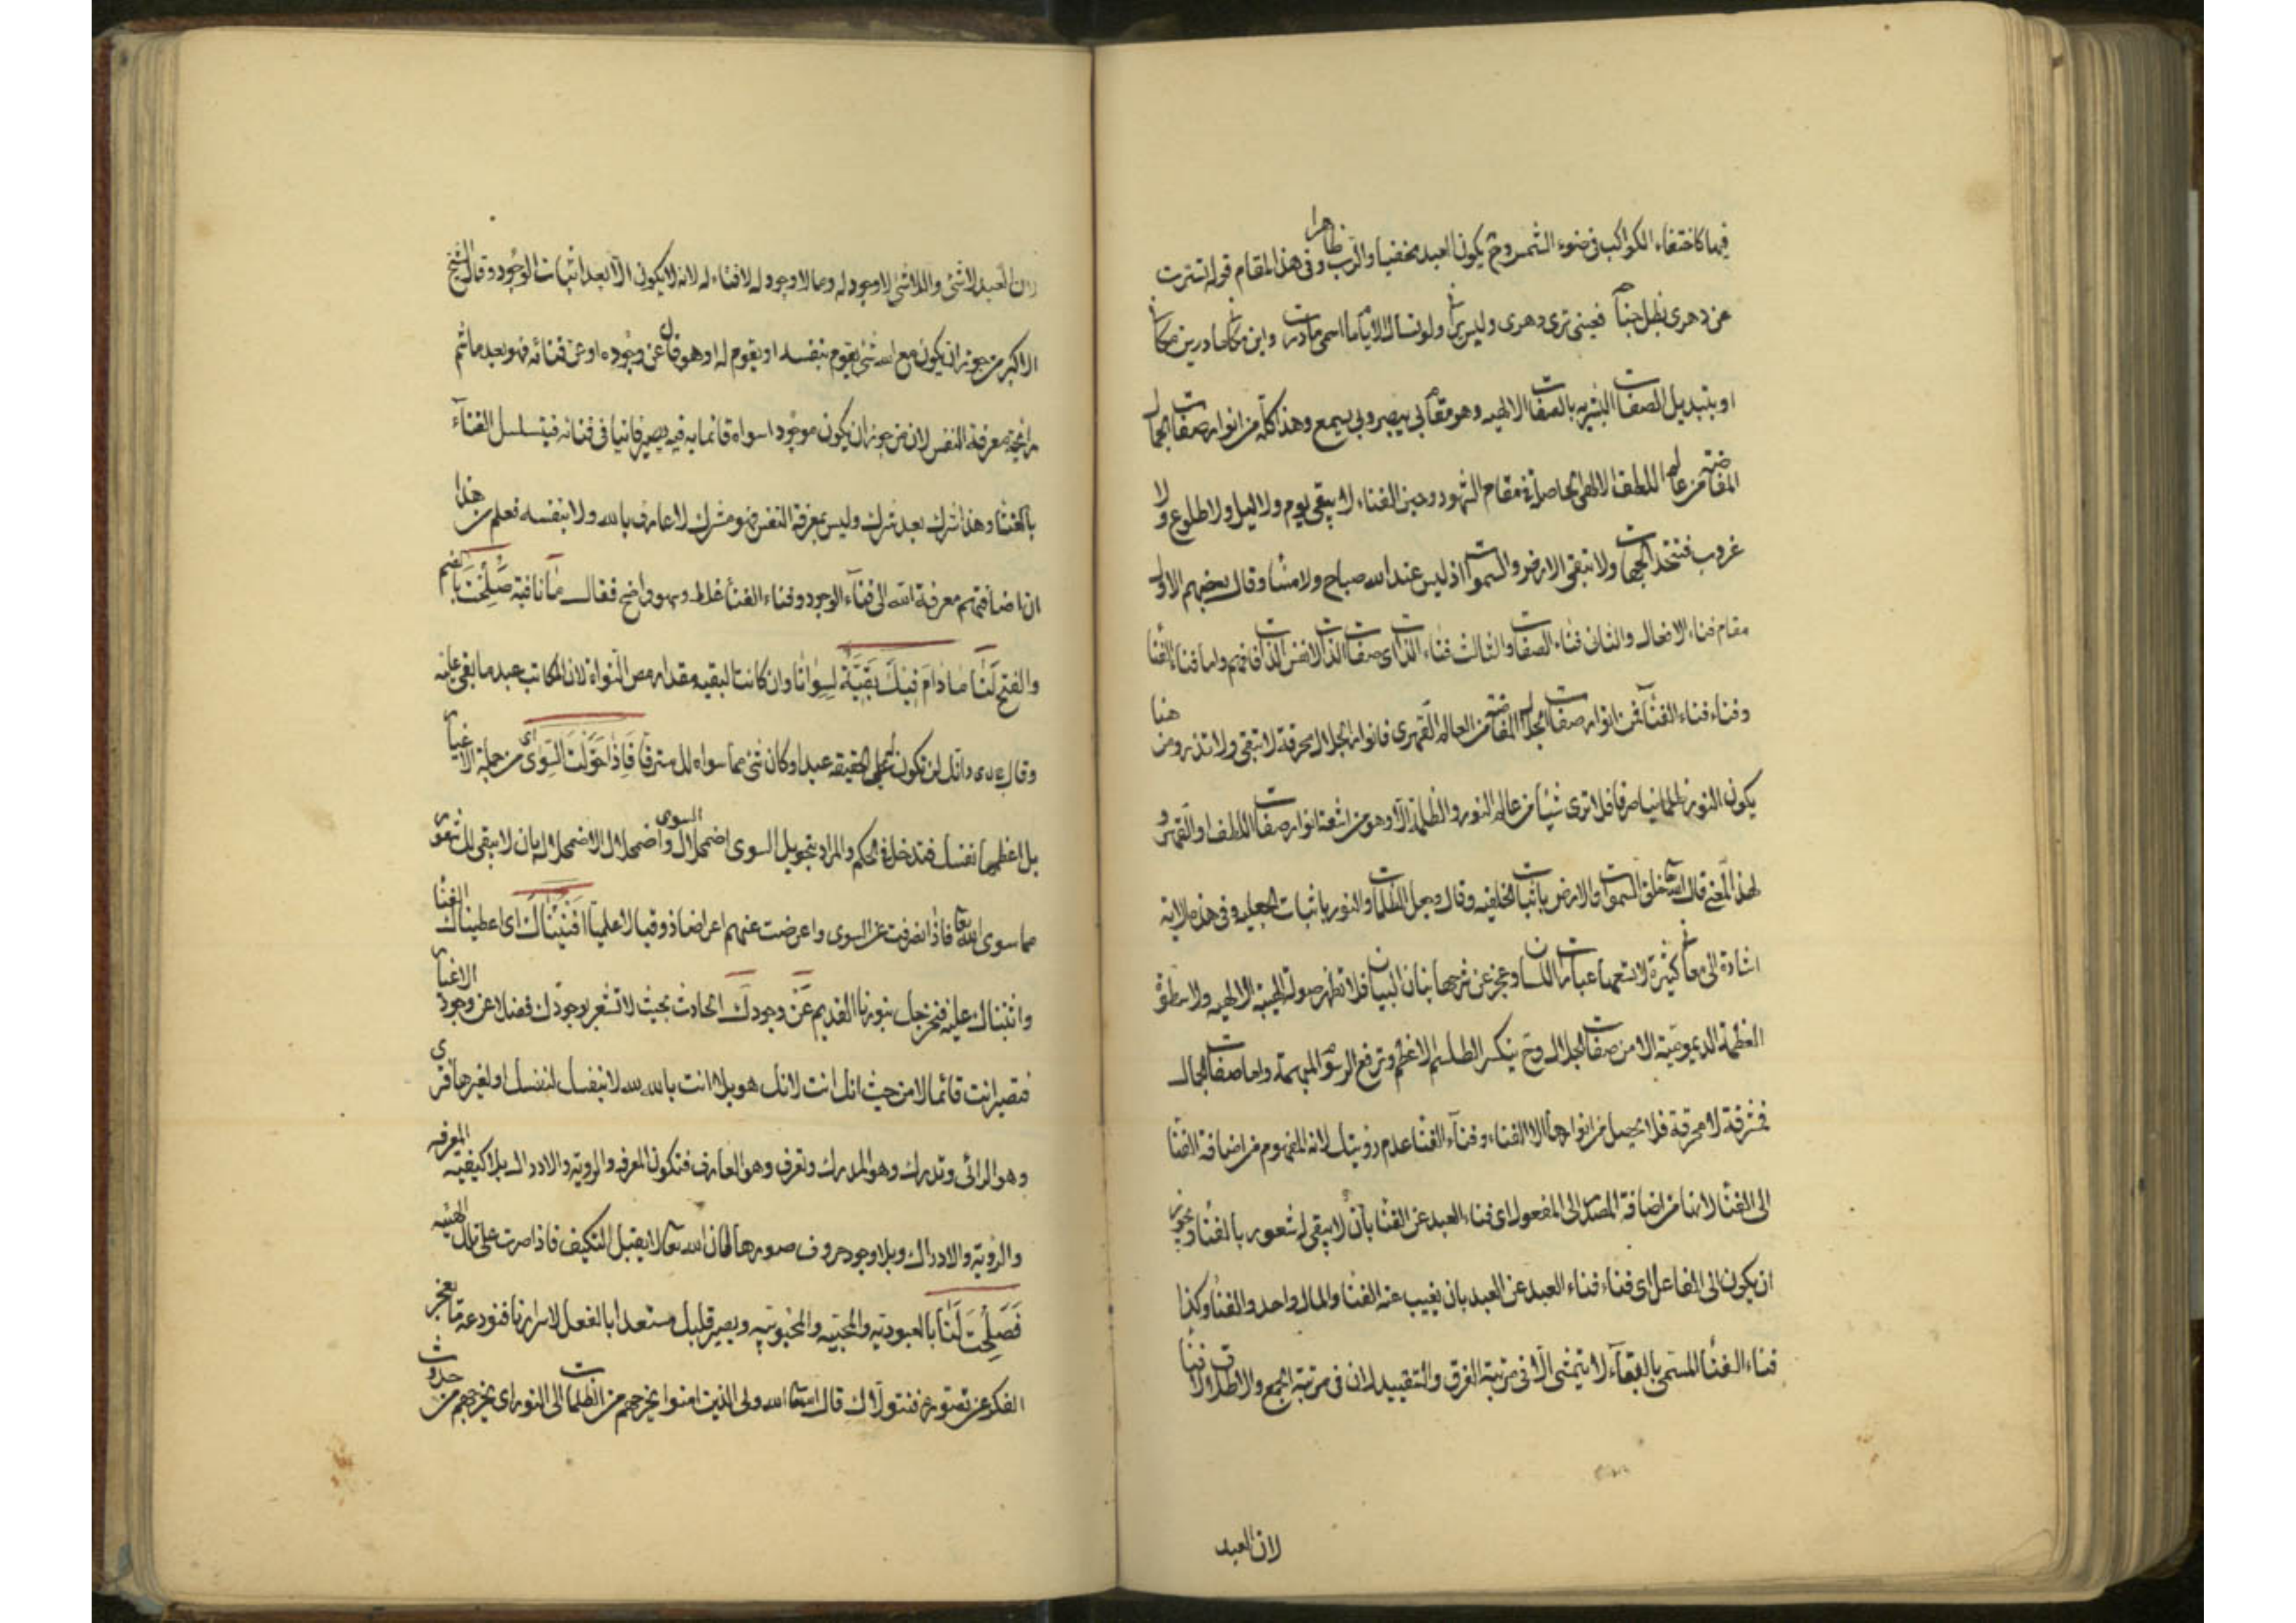 فيها كاختفاء الكواكب في ضوء الشمس وح يكون العبد مختفيا والرب ظاهرا وفي هذا المقام قوله تسترت
عن دهري بظل جنابه فعيني ترى دهري وليس يراني ولو تسأل الايام ما اسمي ما درت واين مكاني ما درين مكاني
او بتبديل الصفات البشريه بالصفات الالهيه وهو مقام بي يبصر وبي يسمع وهذا كله من انوار صفات الجمال
المفاضة من عالم اللطف الالهي الحاصل في مقام الشهود وحين الفناء لا يبقى يوم ولا ليل ولا طلوع ولا
غروب فتتحد الجهات ولا تبقى الارض والسموات اذ ليس عند الله صباح ولا مساء وقال بعضهم الاول
مقام فناء الافعال والثاني فناء الصفات والثالث فناء الذات اى صفات الذات لا نفس الذات فافهم واما فناء الفناء
وفناء فناء الفناء فمن انوار صفات الجلال المفاضة من العالم القهرى فانوار الجلال محرقة لا تبقي ولا تذر ومن هنا
يكون النور ظلمانيا صرفا فلا ترى شيئا من عالم النور والظلمة الا وهو من اشعة انوار صفات اللطف او القهر و
لهذا المعنى قال الله تعالى خلق السموات والارض باثبات الخلقيه وقال وجعل الظلمات والنور باثبات الجعليه وفي هذه الايه
اشارة الى معان كثيرة لا تسعها عبارات اللسان وعجز عن شرحها بنان البيان فلا تظهر صولة الهيبة الالهيه ولا سطوة
العظمة الديموميه الا من صفات الجلال وح ينكسر الطلسم الاعظم وترفع الرسوم المبهمة واما صفات الجمال
فمشرقة لا محرقة فلا يحصل من انوارها الا الفناء وفناء الفناء عدم رؤيتك لانه المفهوم من اضافة الفناء
الى الفناء لانها من اضافة المصدر الى المفعول اى فناء العبد عن الفناء بان لا يبقى له شعور بالفناء ويجوز
ان يكون الى الفاعل اى فناء فناء العبد عن العبد بان يغيب عنه الفناء والمال واحد والفناء وكذا
فناء الفناء المسمى بالبقاء لا يتمشى الا في مرتبة الفرق والتقييد لان في مرتبة الجمع والاطلاق لا فناء
لان العبد
لان العبد لا شئ واللاشئ لا وجود له وما لا وجود له لا فناء له لانه لا يكون الا بعد اثبات الوجود وقال الشيخ
الاكبر من جوز ان يكون مع الله شئ يقوم بنفسه او يقوم له او هو فان عن وجوده او عن فنائه فهو بعد ما شم
رائحة معرفة النفس لان من جوز ان يكون موجود سواه قائما به فيه يصير فانيا في فنائه فيتسلسل الفناء
بالفناء وهذا شرك بعد شرك وليس بمعرفة النفس فهو مشرك لا عارف بالله ولا بنفسه فعلم من هذا
ان اضافتهم معرفة الله الى فناء الوجود وفناء الفناء غلط وسهو واضح فقال ما نافية صلحت بالضم
والفتح لنا ما دام فيك بقية لسوانا وان كانت البقيه مقدار مص النواة لان المكاتب عبد ما بقي عليه
وقال انك لن تكون على الحقيقه عبدا وكان شئ مما سواه لك مسترقا فاذا حولت السوى اى من جملة الاغيار
بل اعظمها نفسك فتدخل في الحكم والمراد بتحويل السوى اضمحلال السوى واضمحلال الاضمحلال بان لا يبقى لك شعور
مما سوى الله تعا فاذا انصرفت عن السوى واعرضت عنهم اعراضا ذوقيا لا علميا افنيناك اى اعطيناك الفناء
واثبتناك عليه فتخرج بنورنا القديم عن وجودك الحادث بحيث لا تشعر بوجودك فضلا عن وجود الاغيار
فتصير انت قائما لا من حيث انك انت لانك هو بلا انت بالله لله لا بنفسك لنفسك او لغيرها فترى
وهو الرائي وتدرك وهو المدرك وتعرف وهو العارف فتكون المعرفه والرويه والادراك بلا كيفيه المعرفه
والرؤية والادراك وبلا وجود حروف صورها لان الله تعا لا يقبل التكيف فاذا صرت على تلك الهيئه
فصلحت لنا بالعبوديه والمحبيه والمحبوبيه ويصير قلبك مستعدا بالفعل لاسرارنا فنودعه ما يعجز
الفكر عن تصوره فنتولاك قال الله تعا الله ولي الذين امنوا يخرجهم من الظلمات الى النور اى يخرجهم من حدوث